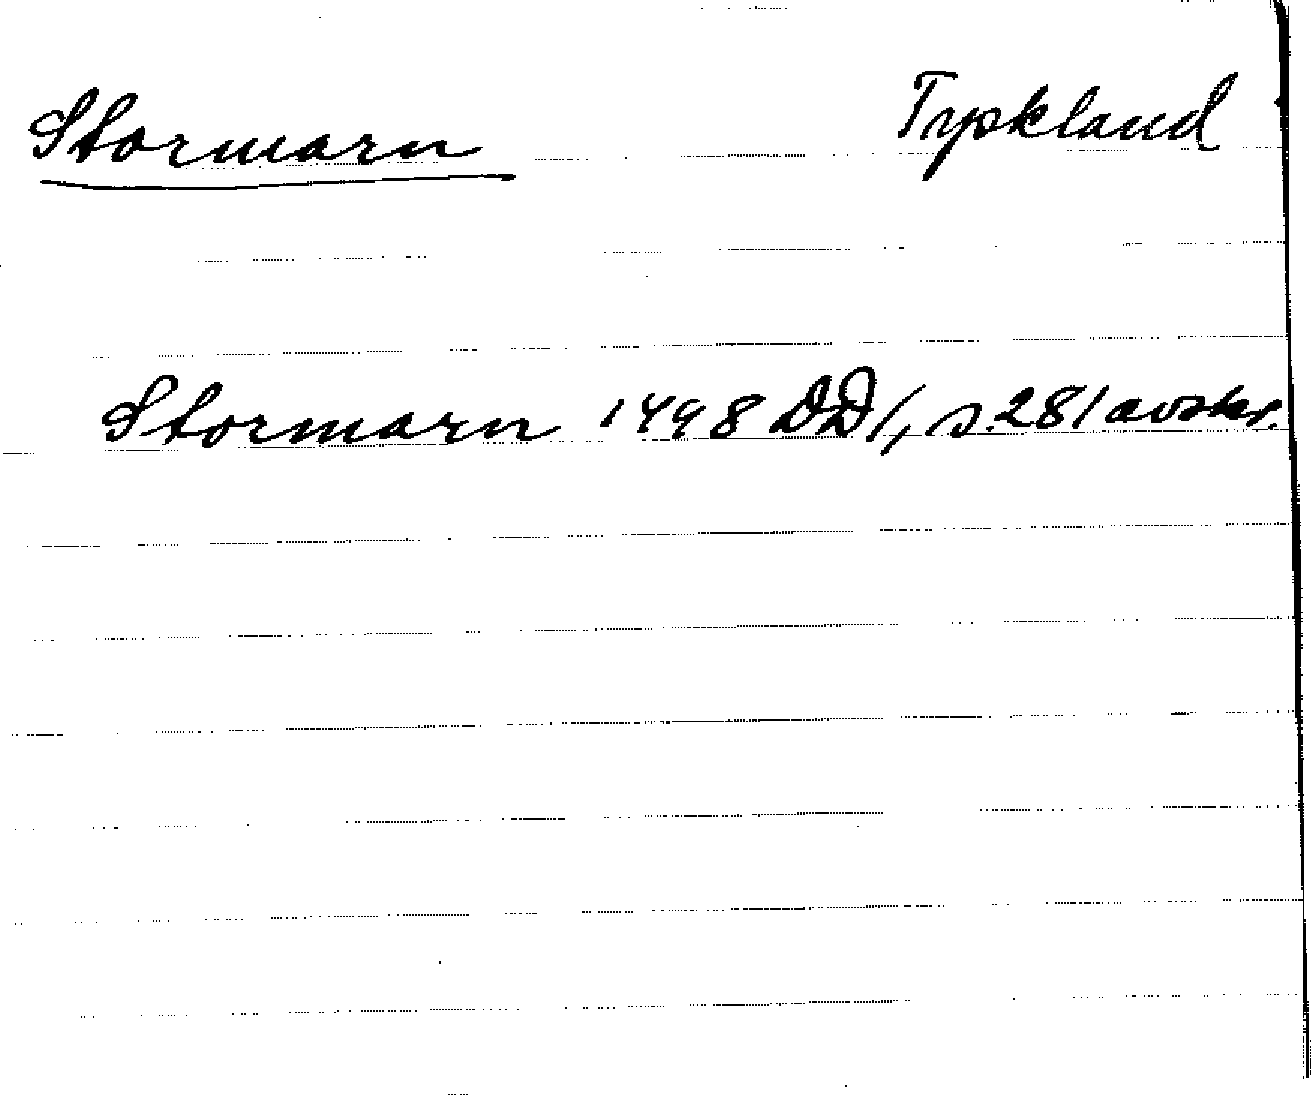 Stormarn Tyskland
Stormarn 1498 DD1, s. 281 avskr.